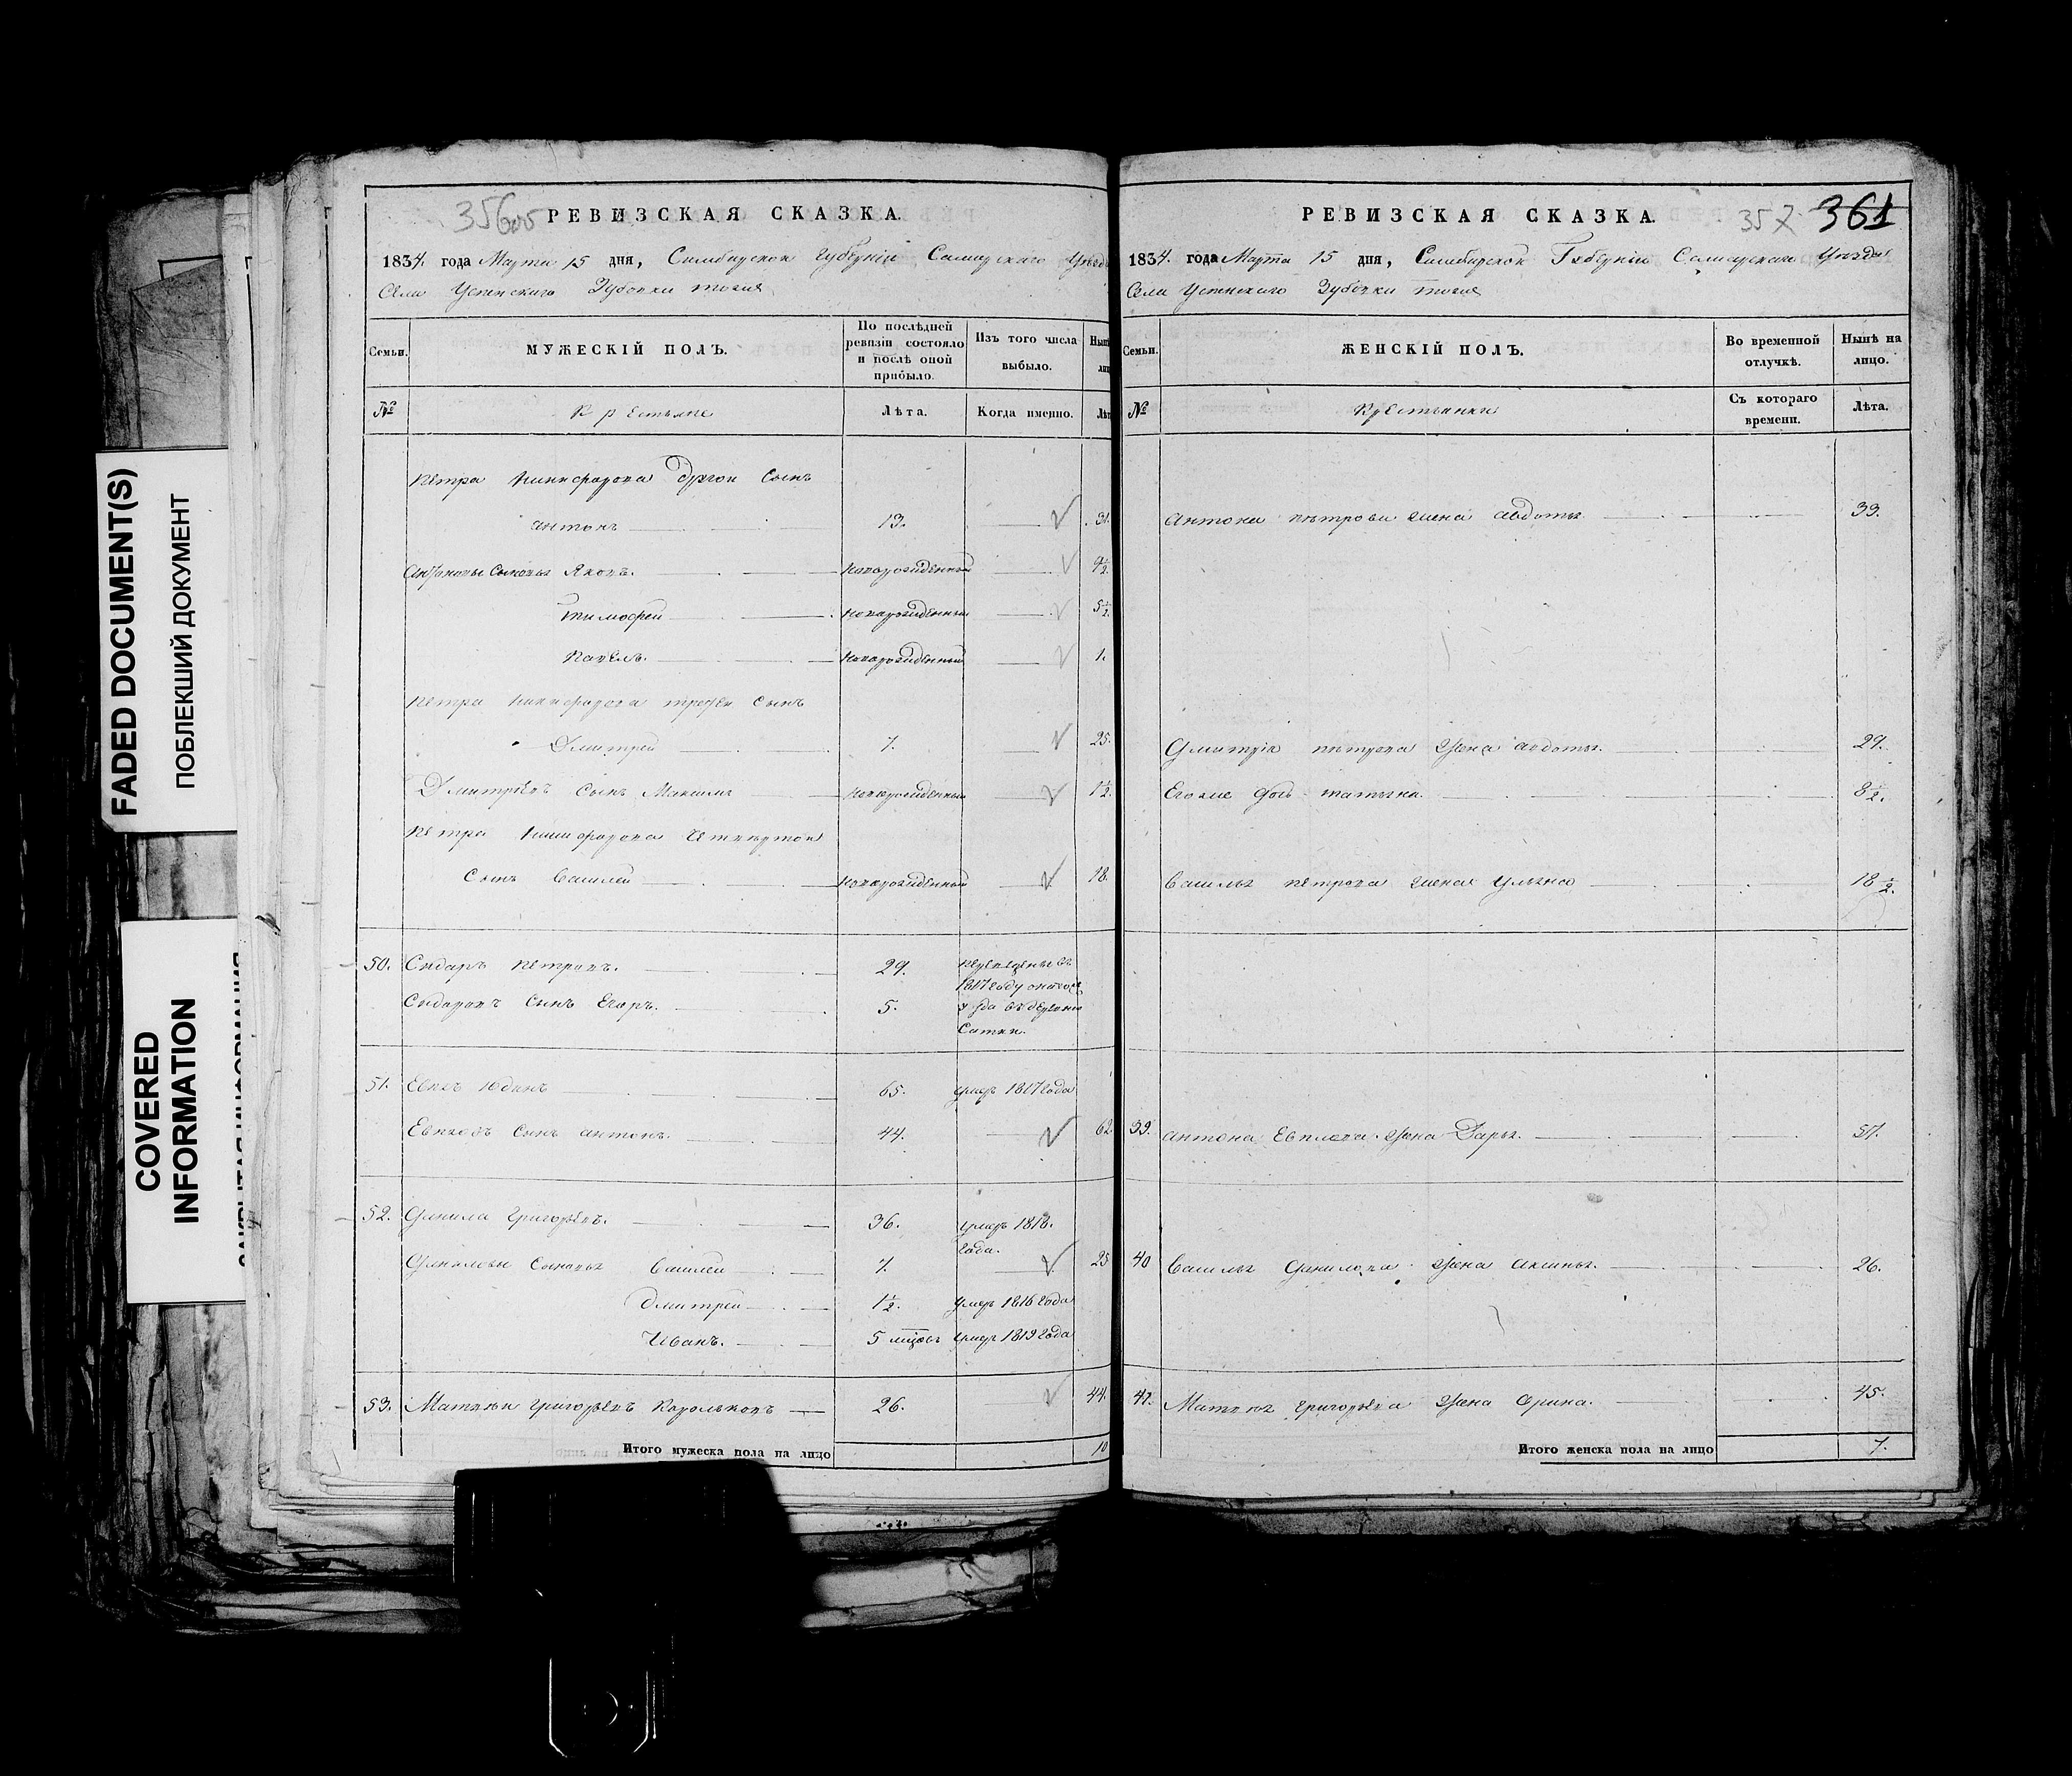 FADED DOCUMENT(S)
ПОБЛЕКШИЙ ДОКУМЕНТ
COVERED
INFORMATION
РЕВИЗСКАЯ СКАЗКА.
1834. года Марта 15 дня, Симбирской Губернiи Самарскаго Уезда
Села Успенскаго Зубовки тожъ
Семьи.
МУЖЕСКІЙ ПОЛЪ.
По послѣдней
ревизіи состояло
и послѣ оной
прибыло.
Изъ того числа
выбыло.
№
Крестьяне
Лѣта.
Когда именно.
Петра Никифорова другой Сынъ
антонъ 13. 31.
Антоновы Сыновья Яковъ. новорожденный 9½
Тимофей новорожденный 5½.
Павелъ. новорожденный 1.
Петра Никифорова третей Сынъ
Дмитрей 7. 25.
Дмитріевъ Сынъ Максимъ новорожденный 1½.
Петра Никифорова Четвертой
Сынъ Василей новорожденный 18.
50. Сидаръ Петровъ. 29.
Сидаровъ Сынъ Егоръ. 5.
51. Евпсъ Юдинъ 65. умеръ 1817 года
Сынъ антонъ. 44. 62.
52. Данила Григорьевъ. 36. умеръ 1818.
года.
Даниловы Сыновья Василей 7. 25
Дмитрей 1½. умеръ 1816 года
Иванъ. 5 мцовъ умеръ 1819 года
53. Матвей Григорьевъ Корольковъ 26. 44.
Итого мужеска пола на лицо 10
РЕВИЗСКАЯ СКАЗКА. 357 361
1834. года Марта 15 дня, Симбирской Губернiи Самарскаго Уезда
Села Успенскаго Зубовки тожъ
Семьи.
ЖЕНСКІЙ ПОЛЪ.
Во временной
отлучкѣ.
Нынѣ на
лицо.
№
Крестьянки
Съ котораго
времени.
Лѣта.
Антона петрова жена авдотья 33.
Дмитрія петрова жена авдотья. 29.
Егоже дочь татьяна. 8½.
Василья петрова жена Ульяна 18½.
39. антона Евплова жена Дарья. 57.
40 Василья Данилова жена аксинья. 26.
41. Матвея Григорьева жена Арина. 45.
Итого женска пола на лицо 7.